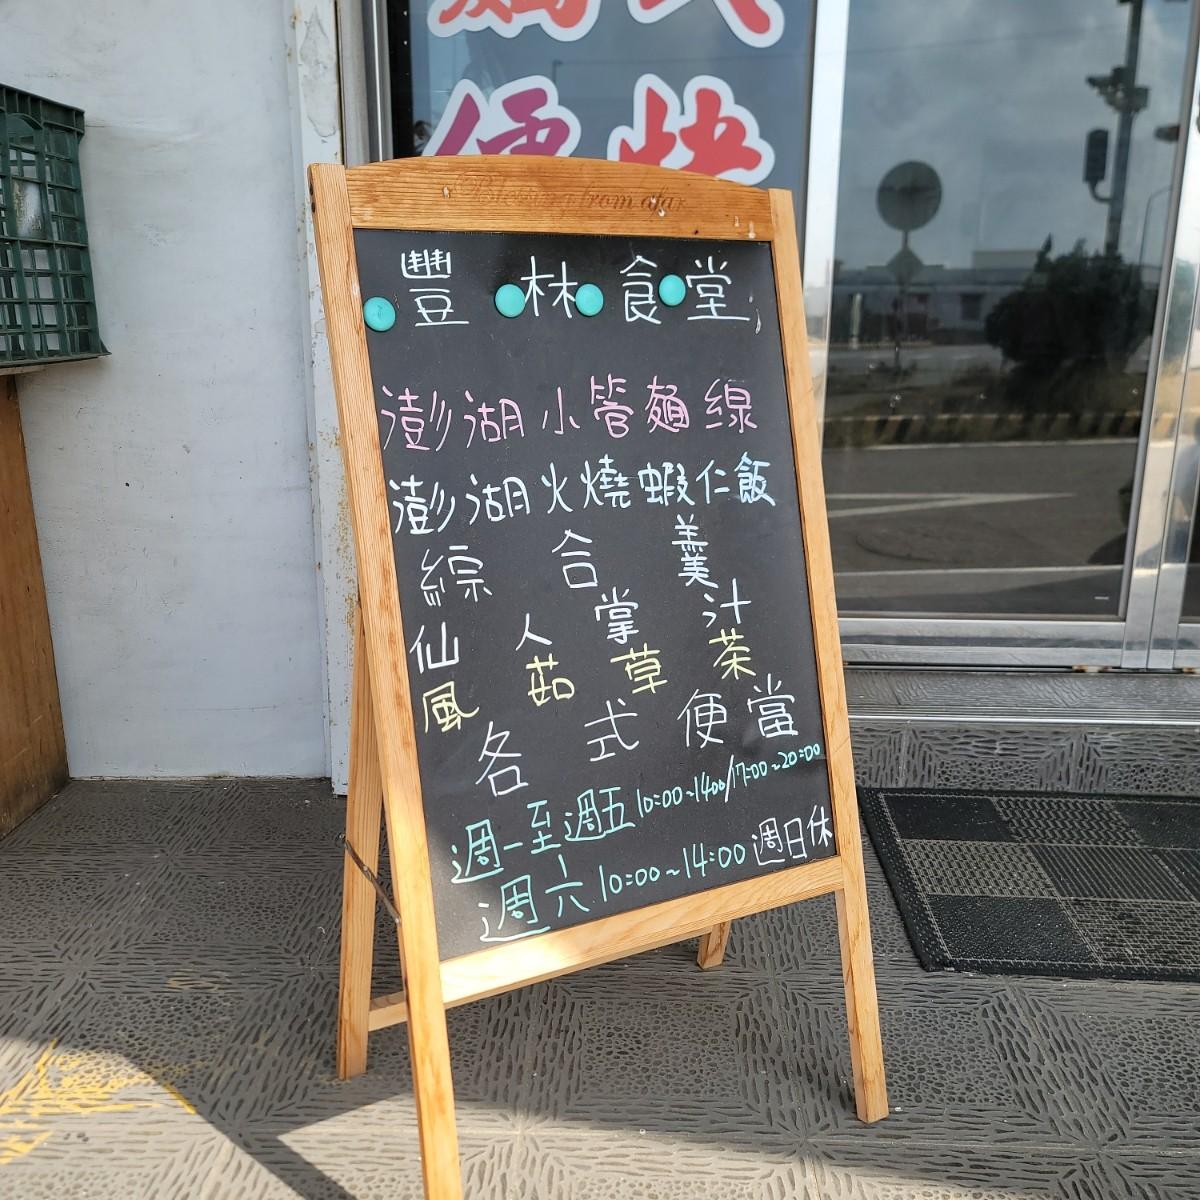 便
Blessing from afar
豐林食堂
澎湖小管麵線
澎湖火燒蝦仁飯
綜合羹
仙人掌汁
風茹草茶
各式便當
週一至週五10:00~1400/17:00~20:00
週六10:00~14:00週日休